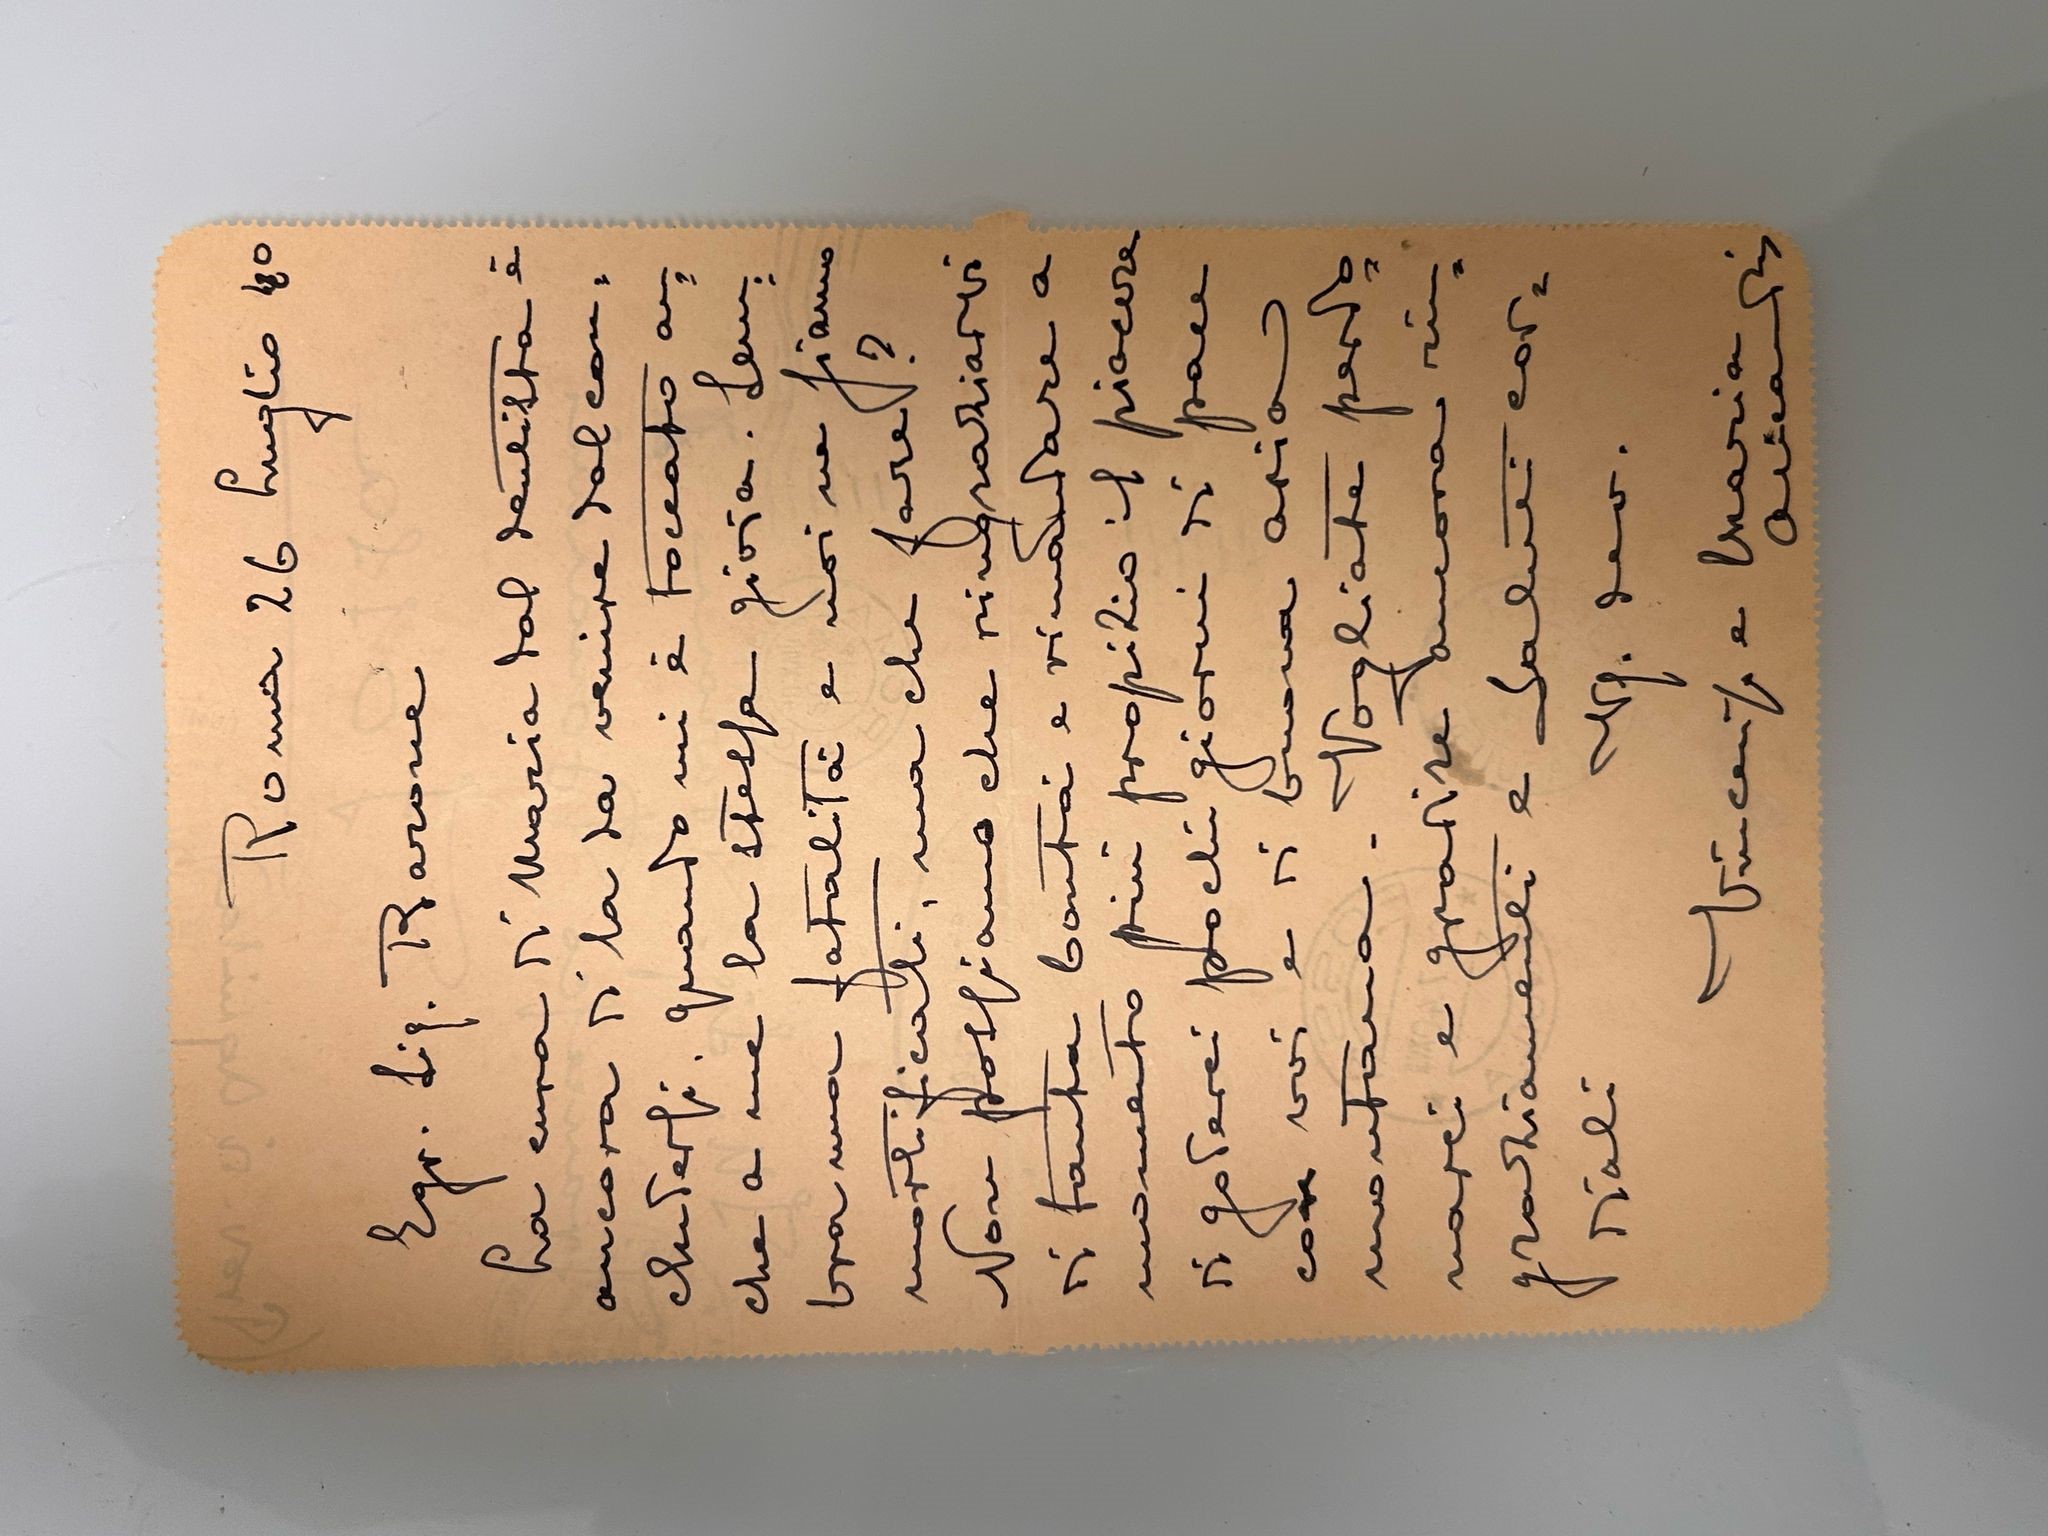 Roma 26 luglio 40
Egr. Sig. Barone
La cura di Maria dal dentista è
ancora di la da venire dal con=
chiudersi. Quando mi è toccato an=
che a me la stessa gioia. Sem=
bra una fatalità e noi ne siamo
mortificati, ma che fare?
Non possiamo che ringraziarvi
di tanta bontà e rimandare a
momento più propizio il piacere
di goderci pochi giorni di pace
con voi e di buona aria
montana. Vogliate perdo=
narci e gradire ancora rin=
graziamenti e saluti cor=
diali
Vs. dev.
Vincenzo e Maria